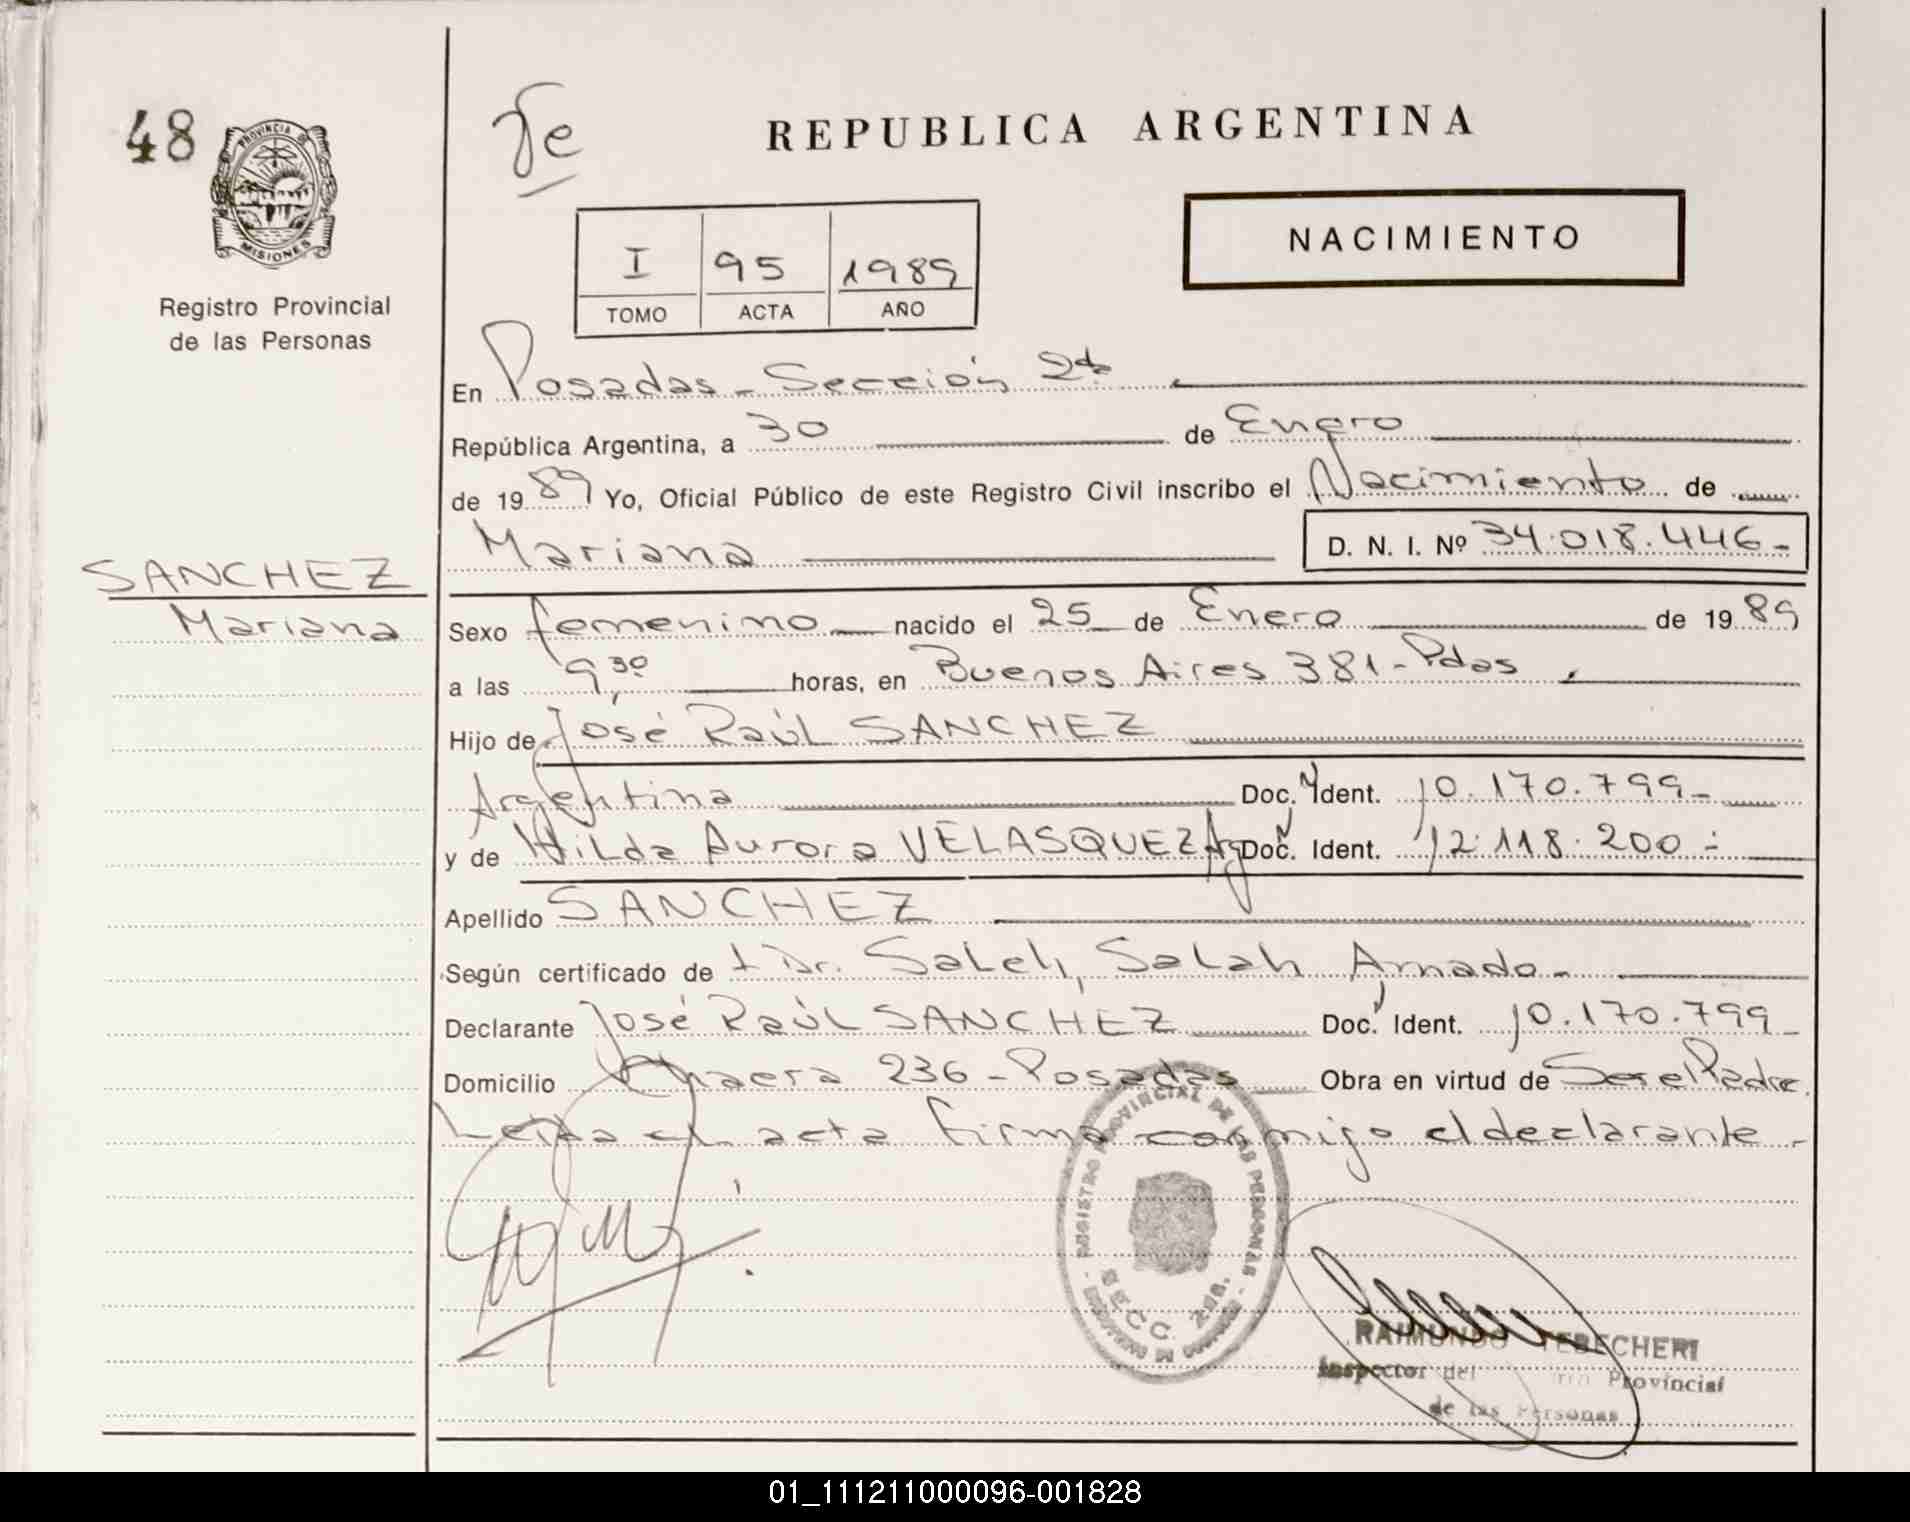 48
PROVINCIA DE
MISIONES
Registro Provincial
de las Personas
SANCHEZ
Mariana
Fe
REPUBLICA ARGENTINA
NACIMIENTO
I 95 1989
TOMO ACTA AÑO
En Posadas - Sección 2da
República Argentina, a 30 de Enero
de 1989 Yo, Oficial Público de este Registro Civil inscribo el Nacimiento de
Mariana D. N. I. Nº 34.018.446-
Sexo femenino nacido el 25 de Enero de 1989
a las 9,30 horas, en Buenos Aires 381-Pdas
Hijo de José Raúl SANCHEZ
Argentina Doc. Ident. 10.170.799-
y de Hilda Aurora VELASQUEZ Arg Doc. Ident. 12.118.200-
Apellido SANCHEZ
Según certificado de Dr. Saleh, Salah Amado-
Declarante José Raúl SANCHEZ Doc. Ident. 10.170.799-
Domicilio 236-Posadas Obra en virtud de Ser el Padre.
Leída el acta firma conmigo el declarante-
REGISTRO PROVINCIAL DE LAS PERSONAS
SECC. 2da.
RAIMUNDO TEBECHERI
Inspector del Provincial
de las Personas
01_111211000096-001828